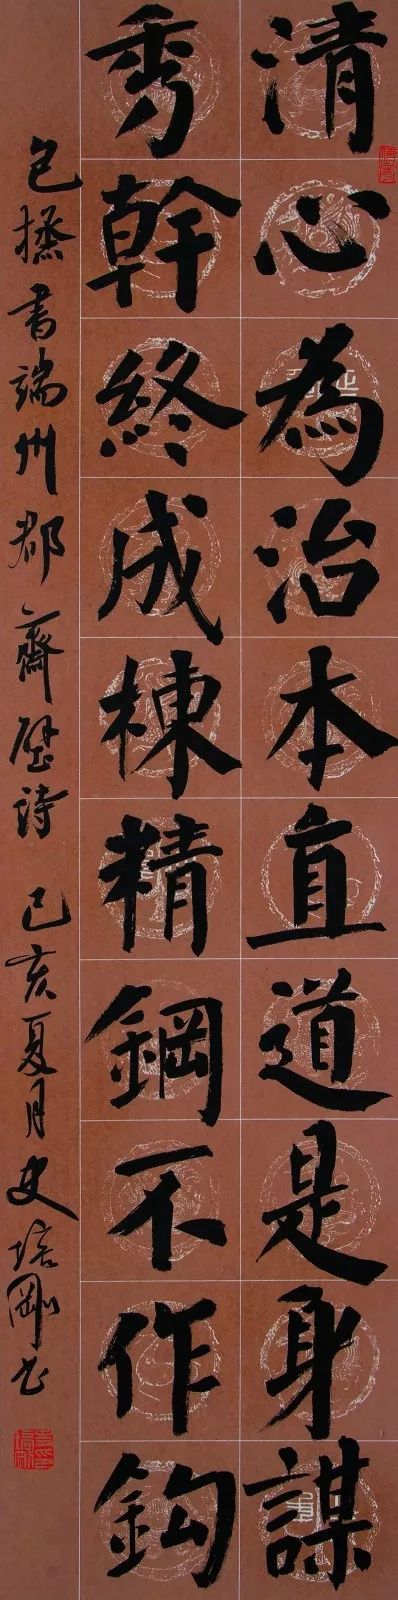 清心為治本直道是身謀
秀幹終成棟精鋼不作鈎
包拯書端州郡齋壁詩 己亥夏月史培剛书